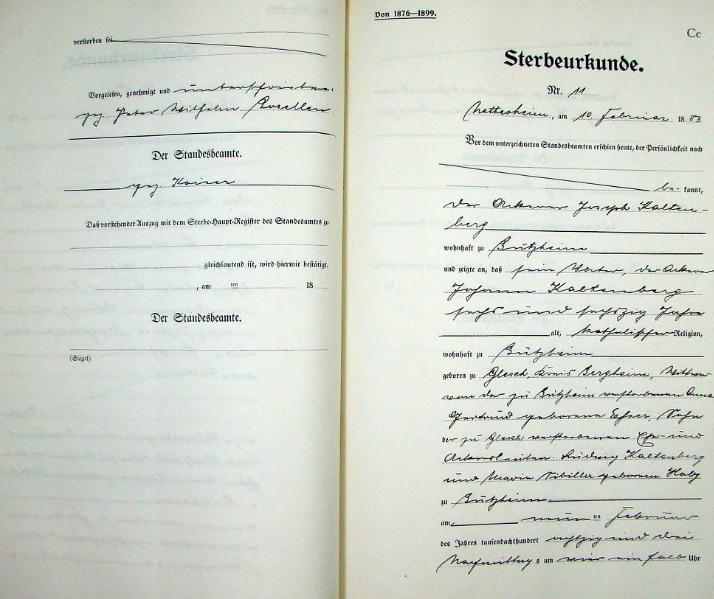 verstorben sei
Vorgelesen, genehmigt und unterschrieben.
gez. Peter Wilhelm
Der Standesbeamte.
gez. Kaiser
Daß vorstehender Auszug mit dem Sterbe-Haupt-Register des Standesamtes zu
gleichlautend ist, wird hiermit bestätigt.
, am ten 18
Der Standesbeamte.
(Siegel)
Von 1876—1899.
Cc
Sterbeurkunde.
Nr. 11
Nettesheim, am 10. Februar 1883
Vor dem unterzeichneten Standesbeamten erschien heute, der Persönlichkeit nach
be- kannt,
der Ackerer Joseph Kalten-
berg
wohnhaft zu Bützheim
und zeigte an, daß sein Vater, der Ackerer
Johann Kaltenberg
sechs und sechszig Jahre
alt, katholischer Religion,
wohnhaft zu Bützheim
geboren zu Glesch, Kreis Bergheim, Wittwer
von der zu Bützheim verstorbenen Anna
Gertrud geborenen Esser, Sohn
der zu Glesch verstorbenen Ehe- und
Ackersleuten Ludwig Kaltenberg
und Maria Sibilla geborenen
zu Bützheim
am neun ten Februar
des Jahres tausendachthundert achtzig und drei
Nachmittags um vier ein halb Uhr